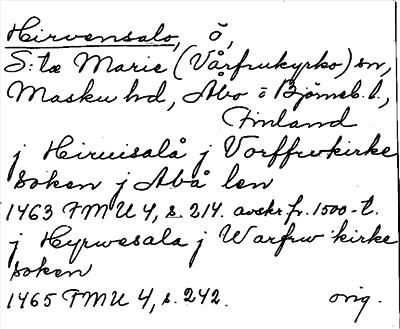 Hirvensalo, ö,
S:ta Marie (Vårfrukyrko) sn,
Masku hd, Åbo o Björneb. l.,
Finland
j Hiruisalå j Vorffrwkirke
soken j Abå len
1463 FMU 4, s. 214. avskr. fr. 1500-t.
j Hyrwesala j Warfrw kirke
soken
1465 FMU 4, s. 242. orig.